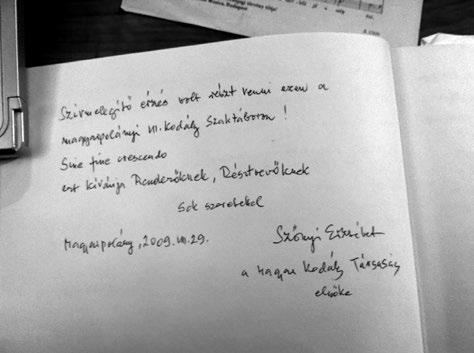 Szívmelegítő érzés volt részt venni ezen a
magyarpolányi VII. Kodály Szaktáboron!
Sine fine crescendo
ezt kívánja Rendezőknek, Résztvevőknek
sok szeretettel
Magyarpolány, 2009.VII.29.
Szőnyi Erzsébet
a Magyar Kodály Társaság
elnöke